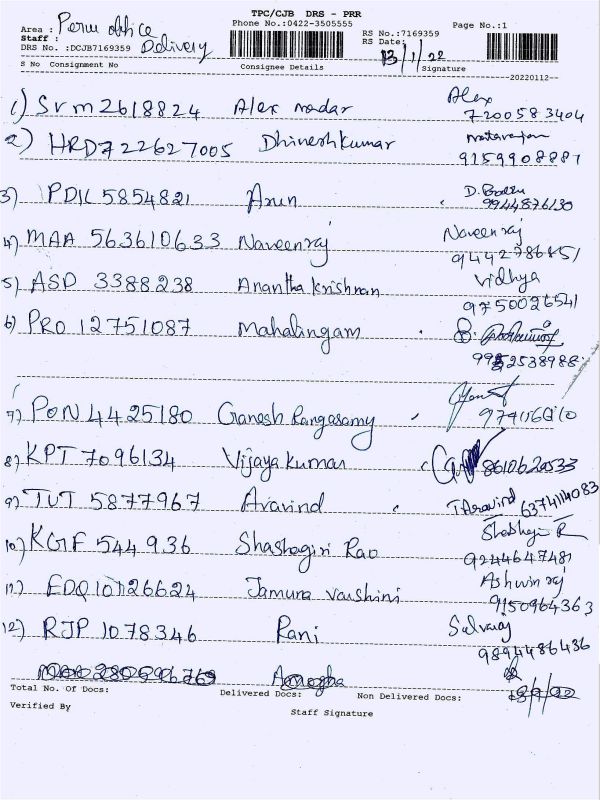 TPC/CJB DRS - PRR
Area : Peru office Phone No.:0422-3505555 Page No.:1
Staff : RS No.:7169359
DRS No. :DCJB7169359 Delivery RS Date: 13/1/22
S No Consignment No Consignee Details Signature
20220112--
1) Srm2618824 Alex nadar Alex
7200583404
2) HRD722627005 Dhineshkumar Natarajan
9159908887
3) PDK5854821 Arun
9944876130
4) MAA 563610633 Naveenraj Naveenraj
5) ASD 3388238 Anantha Krishnan Vidhya
9750026541
6) PRO 12751087 Mahalingam
9952538988
7) PON 4425180 Ganesh Rangasamy
8) KPT 7096134 Vijaya Kumar 8610620533
9) TUT 5877967 Aravind T.Aravind 6374114083
10) KGF 544936 Shashagiri Rao
9244647481
11) EDQ101126624 Jamuna Varshini Ashwin raj
9150964363
12) RJP 1078346 Rani Selvaraj
9894486436
Total No. Of Docs: Delivered Docs: Non Delivered Docs:
Verified By Staff Signature